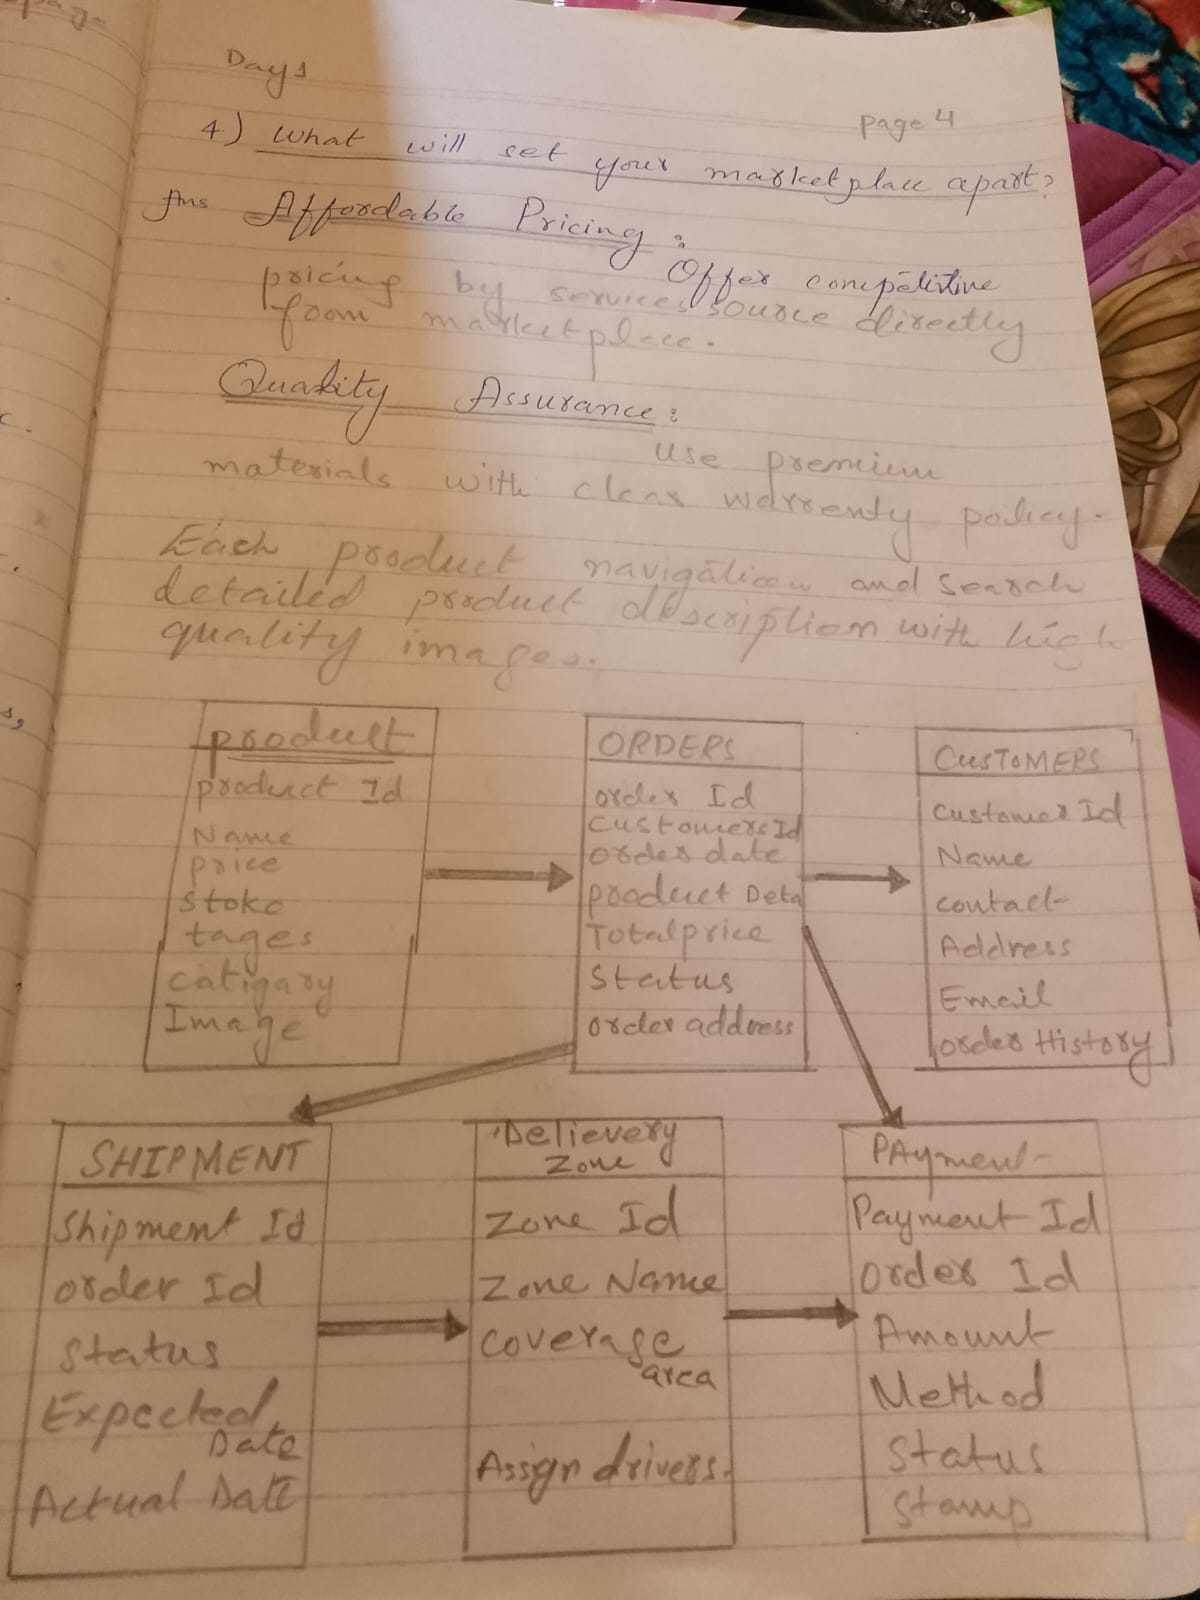 page
Day 1
page 4
4) What will set your marketplace apart?
Ans Affordable Pricing:
Offer competitive
pricing by services source directly
from marketplace.
Quality Assurance:
Use premium
materials with clear warrenty policy.
Each product navigation and search
detailed product description with high
quality images.
product
product Id
Name
price
Stoke
tages
catigary
Image
ORDERS
order Id
Customers Id
order date
product Deta
Total price
Status
order address
CUSTOMERS
Customer Id
Name
contact
Address
Email
order History
SHIPMENT
Shipment Id
order Id
Status
Expected
Date
Actual Date
Delievery
Zone
Zone Id
Zone Name
coverage
area
Assign drivers.
PAyment
Payment Id
Order Id
Amount
Method
Status
Stamp